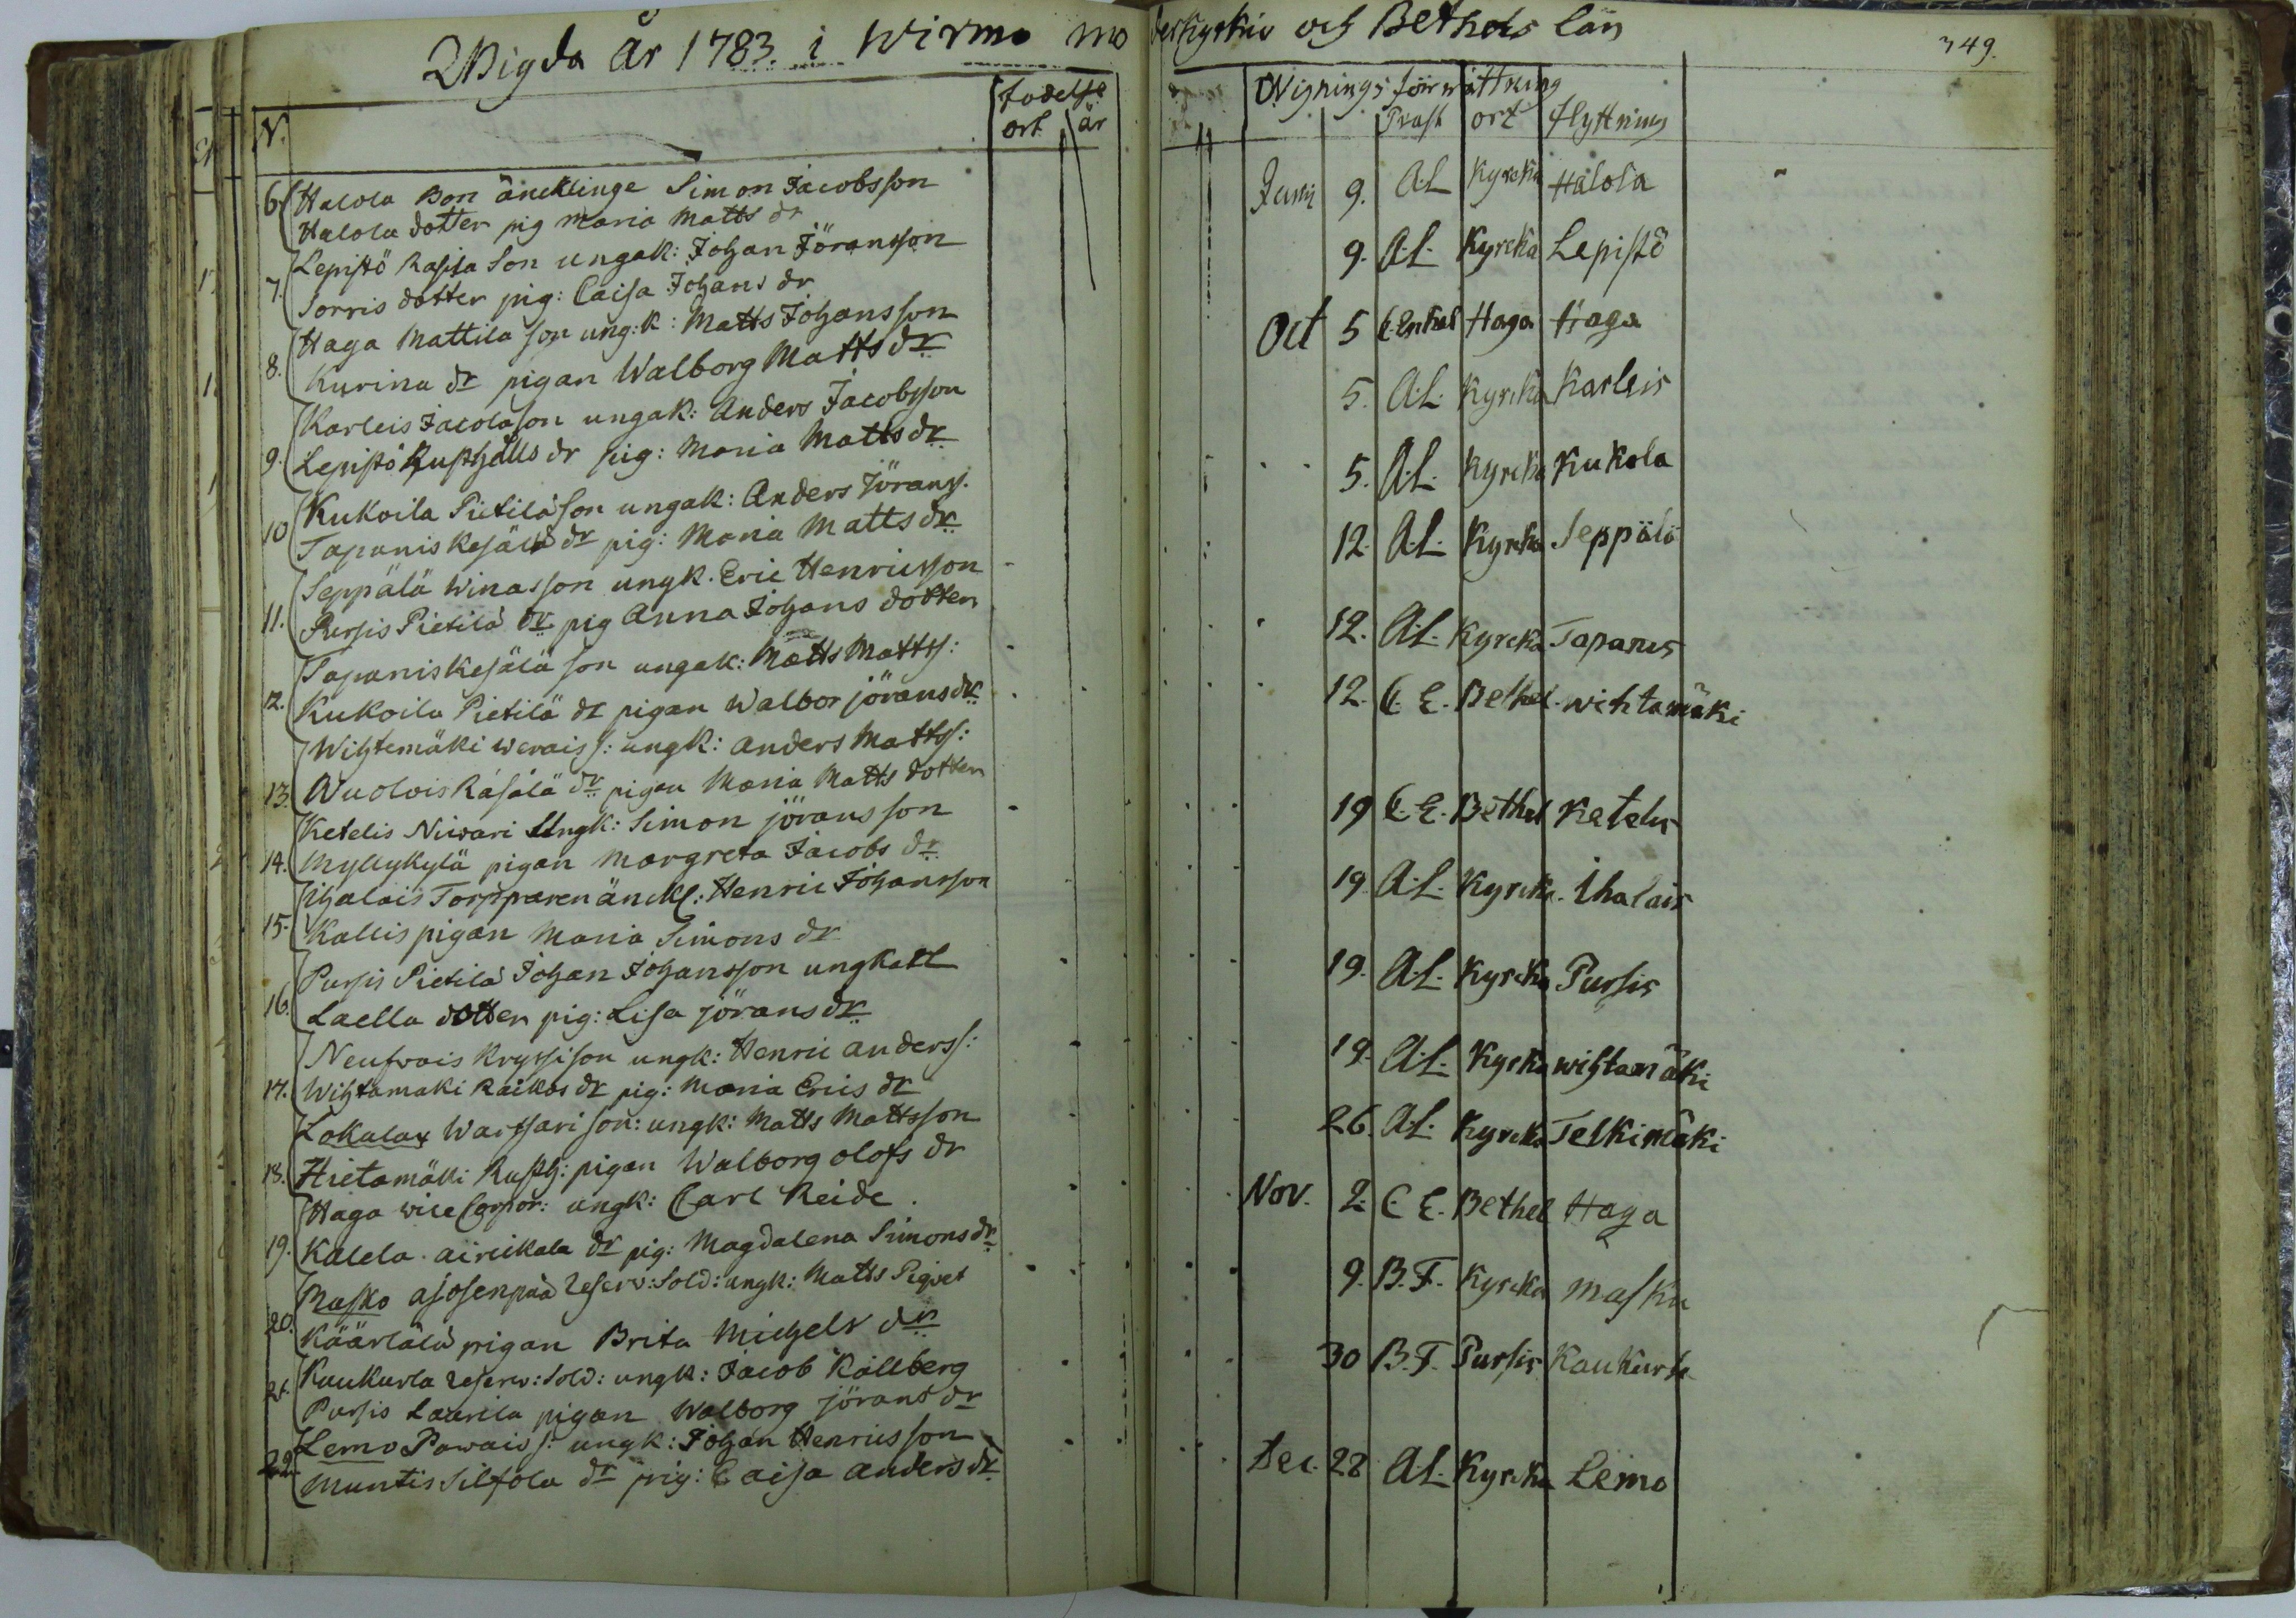 Wigda År 1783. i Wirmo moderkyrkio och Bethels län
349.
N.
födelse
ort år
6. Halola Bon äncklinge Simon Jacobsson
Halola dotter pig Maria Matts dr
7. Lepistö Rasila Son ungak: Johan Jöransson
Sorris dotter pig: Caisa Johans dr
8. Haga Mattila son ung:k: Matts Johansson
Kurina dr pigan Walborg Matts dr
9. Karleis Jacola son ungak: Anders Jacobsson
Lepistö Rusthålls dr pig: Maria Matts dr
10 Kukoila Pietilä son ungak: Anders Jöranss.
Tapanis Kesälä dr pig: Maria Matts dr
11. Seppälä Winas son ungk. Eric Henricsson
Pursis Pietilä dr pig Anna Johans dotter
12. Tapanis Kesälä son ungak: Matts Mattss:
Kukoila Pietilä dr pigan Walbor jörans dr
13. Wihtemäki werais s: ungk: Anders Mattss:
Wuolois Räsälä dr pigan Maria Matts dotter
14. Ketelis Niwari Ungk: Simon jöransson
Myllykylä pigan Margreta Jacobs dr
15. ihalais Torpparen änckl: Henric Johansson
Kallis pigan Maria Simons dr
16. Pursis Pietilä Johan Johansson ungkarl
Laella dotter pig: Lisa jörans dr
17. Neufvois Kryssi son ungk: Henric anderss:
Wihtamaki Raikas dr pig: Maria Erics dr
18. Lokalax Warssari son: ungk: Matts Mattsson
Hietamäki Rusth: pigan Walborg olofs dr
19. Haga wice Corpor: ungk: Carl Reide.
Kalela airickala dr pig: Magdalena Simons dr
20. Masko ajosenpää reserv: Sold: ungk: Matts Piqvet
Käärlälä pigan Brita Michels dr
21. Kaukurla reserv: Sold: ungk: Jacob Källberg
Pursis Laurila pigan Walborg jörans dr
22. Lemo Pawais s: ungk: Johan Henricsson
Muntis Silfola dr pig: Caisa anders dr
Wignings förrättning
Präst ort flyttning
Junii 9. A.L. Kyrcka Halola
9. A.L. Kyrcka Lepistö
Oct 5 C. Enkel Haga Haga
5. A.L. Kyrcka Karleis
5. A.L. Kyrcka Kukola
12. A.L. Kyrcka Seppälä
12. A.L. Kyrcka Tapanis
12. C. E. Bethel wihtamäki
19 C. E. Bethel Ketelis
19. A.L. Kyrcka. Ihalais
19. A.L. Kyrcka Pursis
19. A.L. Kyrcka wihtamäki
26. A.L. Kyrcka Telkimäki
Nov. 2. C E. Bethel Haga
9. B. F. Kyrcka Masku
30 B. F. Pursis Kaukurla
Dec. 28 A.L. Kyrcka Lemo